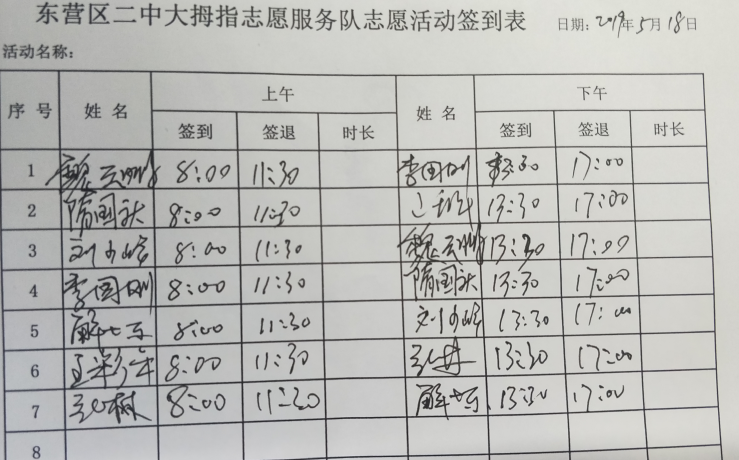 东营区二中大拇指志愿服务队志愿活动签到表 日期:2019年5月18日
活动名称:
序号 姓名 上午 姓名 下午
签到 签退 时长 签到 签退 时长
1 8:00 11:30 李国刚 13:30 17:00
2 隋国跃 8:00 11:30 13:30 17:00
3 刘少峰 8:00 11:30 13:30 17:00
4 李国刚 8:00 11:30 隋国跃 13:30 17:00
5 8:00 11:30 刘少峰 13:30 17:00
6 8:00 11:30 13:30 17:00
7 8:00 11:30 13:30 17:00
8